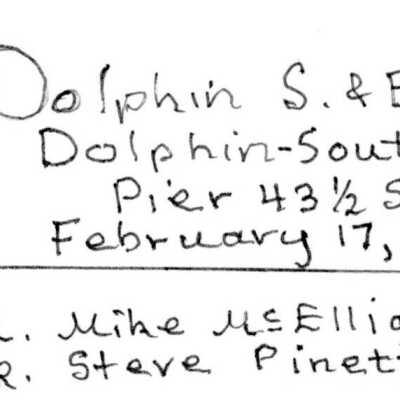 Dolphin S. & B
Dolphin-Sout
Pier 43 ½ S
February 17,
. Mike McEllio
2. Steve Pinett